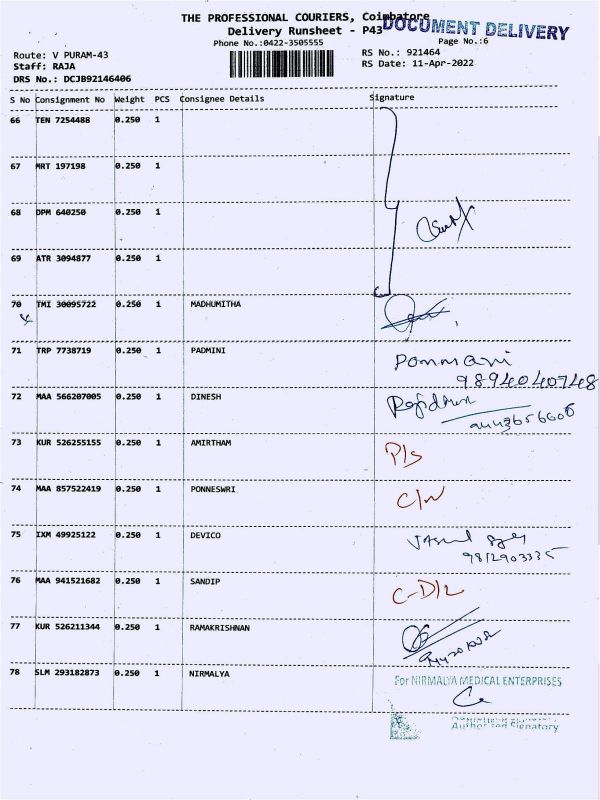 THE PROFESSIONAL COURIERS, Coimbatore
DOCUMENT DELIVERY
Delivery Runsheet - P43
Phone No.:0422-3505555
Page No.:6
Route: V PURAM-43
RS No.: 921464
Staff: RAJA
RS Date: 11-Apr-2022
DRS No.: DCJB92146406
S No Consignment No Weight PCS Consignee Details Signature
66 TEN 7254488 0.250 1
67 MRT 197198 0.250 1
68 DPM 640250 0.250 1
69 ATR 3094877 0.250 1
70 TMI 30095722 0.250 1 MADHUMITHA
71 TRP 7738719 0.250 1 PADMINI Ponmani
9894040748
72 MAA 566207005 0.250 1 DINESH
73 KUR 526255155 0.250 1 AMIRTHAM P/s
74 MAA 857522419 0.250 1 PONNESWRI
75 IXM 49925122 0.250 1 DEVICO
9812903335
76 MAA 941521682 0.250 1 SANDIP
77 KUR 526211344 0.250 1 RAMAKRISHNAN
78 SLM 293182873 0.250 1 NIRMALYA
For NIRMALYA MEDICAL ENTERPRISES
Authorised Signatory